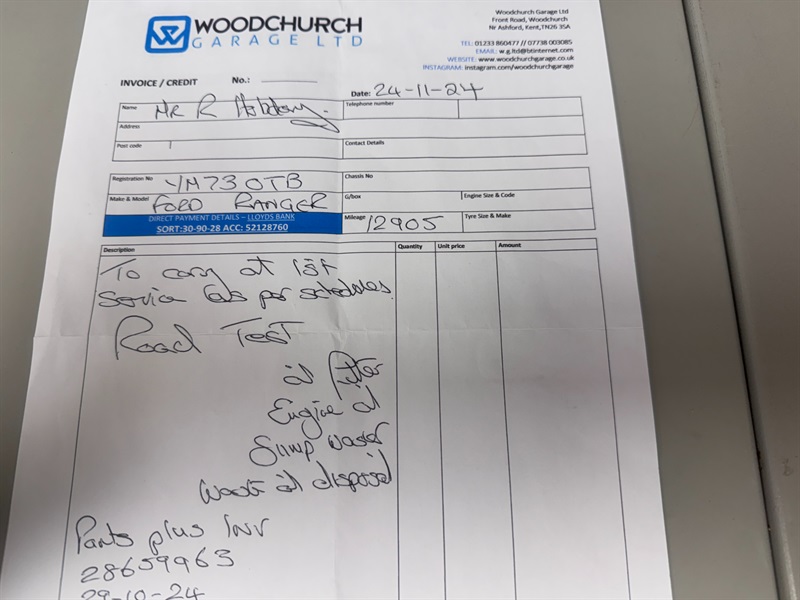 WOODCHURCH
GARAGE LTD
Woodchurch Garage Ltd
Front Road, Woodchurch
Nr Ashford, Kent,TN26 3SA
TEL: 01233 860477 // 07738 003085
EMAIL: w.g.ltd@btinternet.com
WEBSITE: www.woodchurchgarage.co.uk
INSTAGRAM: instagram.com/woodchurchgarage
INVOICE / CREDIT No.:
Date: 24-11-24
Name Mr R
Telephone number
Address
Post code
Contact Details
Registration No YM73 OTB
Chassis No
Make & Model FORD RANGER
G/box
Engine Size & Code
DIRECT PAYMENT DETAILS – LLOYDS BANK
SORT:30-90-28 ACC: 52128760
Mileage 12905
Tyre Size & Make
Description Quantity Unit price Amount
To carry out 1st
Service as per schedules
Road Test
oil filter
Engine oil
Sump washer
Waste oil disposal
Parts plus INV
28659963
29-10-24